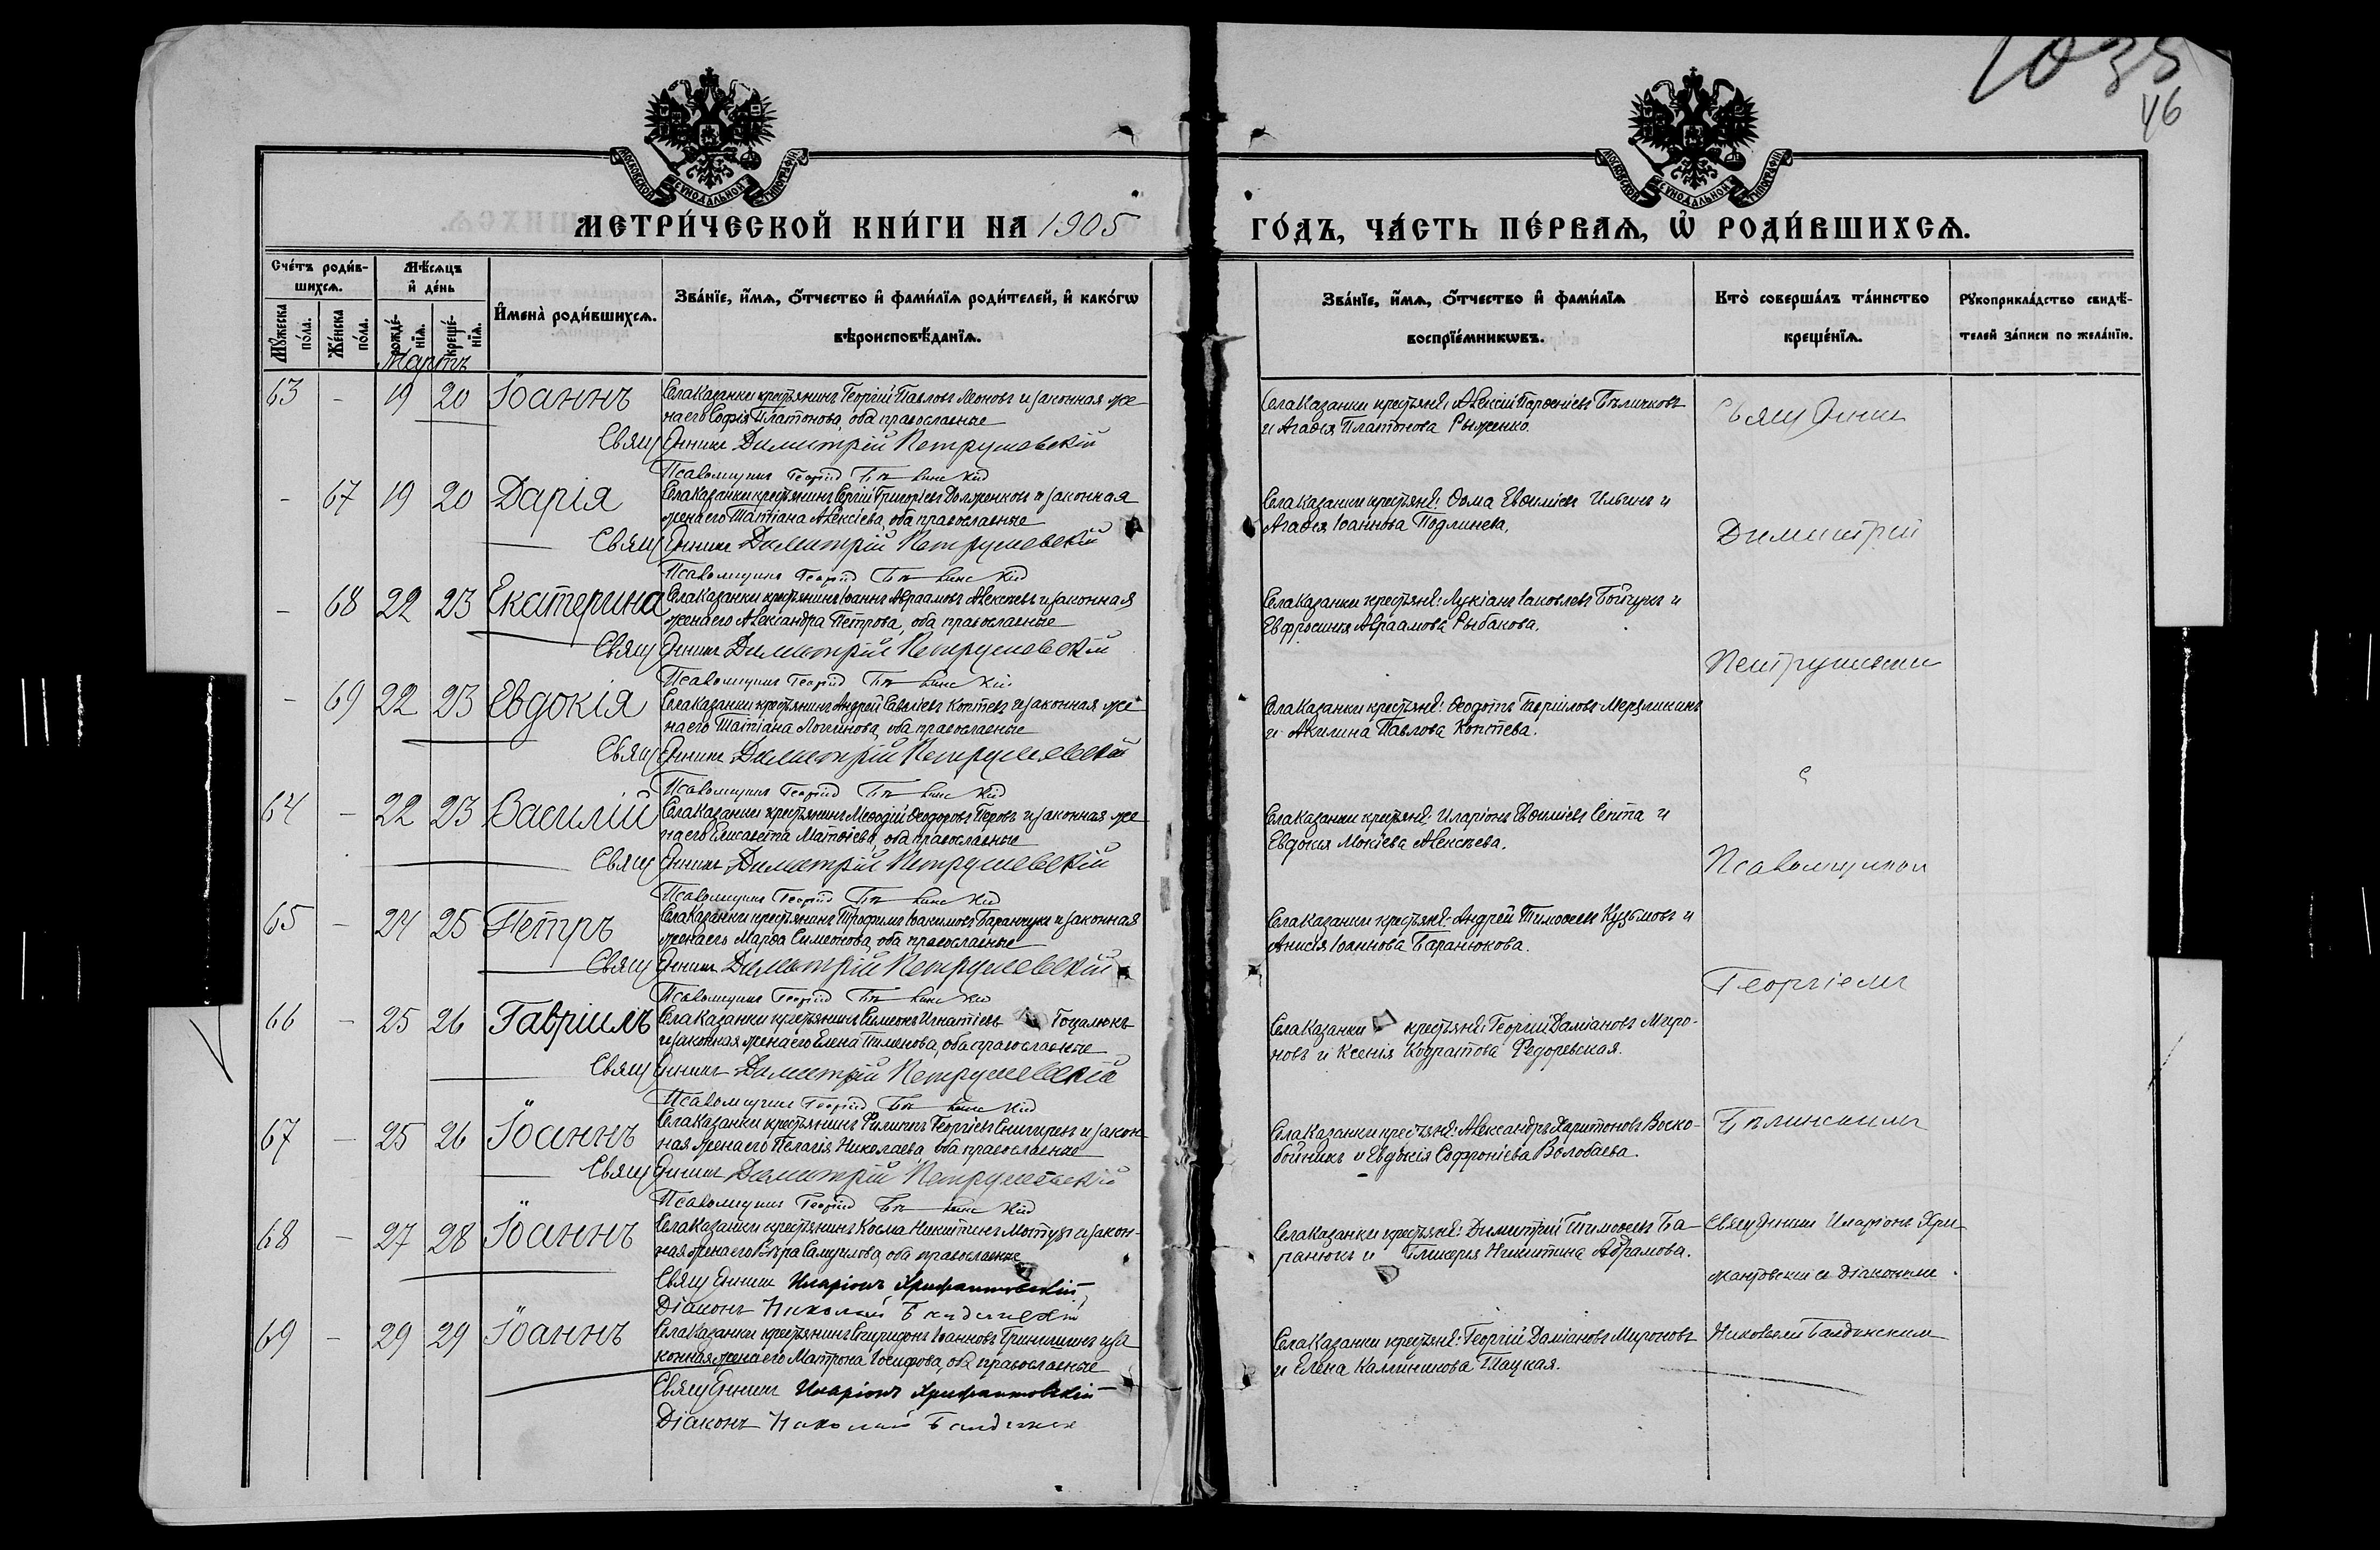 1035
46
МОСКОВСКОЙ СѴНОДАЛЬНОЙ ТИПОГРАФІИ
МОСКОВСКОЙ СѴНОДАЛЬНОЙ ТИПОГРАФІИ
МЕТРИ́ЧЕСКОЙ КНИ́ГИ НА 1905
ГО́ДЪ, ЧА́СТЬ ПЕ́РВАѦ, Ѡ҆ РОДИ́ВШИХСѦ.
Сче́тъ роди́в-
шихсѧ.
Мꙋ́жеска по́ла.
Же́нска по́ла.
Мѣ́сѧцъ
и҆ де́нь
рожде́-нїѧ.
креще́-нїѧ.
И҆мена̀ роди́вшихсѧ.
Зва́нїе, и҆́мѧ, ѻ҆́тчество и҆ фами́лїѧ роди́телей, и҆ како́гѡ
вѣроисповѣ́данїѧ.
Зва́нїе, и҆́мѧ, ѻ҆́тчество и҆ фами́лїѧ
воспрїе́мникѡвъ.
Кто̀ соверша́лъ та́инство
креще́нїѧ.
Рꙋкоприкла́дство свидѣ́-
телей за́писи по жела́нїю.
Мартъ
63 - 19 20 Іоаннъ
Села Казанки крестьянинъ Георгій Павловъ Леновъ и законная же-
на его Софія Платонова, оба православные
Священникъ Димитрій Петрушевскій
Псаломщикъ Георгій Бѣлинскій
Села Казанки крестьяне: Алексій Парѳеніевъ Бѣличковъ
и Агаѳія Платонова Рыженко.
Священникъ
- 67 19 20 Дарія
Села Казанки крестьянинъ Сергій Григоріевъ Долженковъ и законная
жена его Татіана Алексіева, оба православные
Священникъ Димитрій Петрушевскій
Псаломщикъ Георгій Бѣлинскій
Села Казанки крестьяне: Ѳома Евѳиміевъ Ильинъ и
Агаѳія Іоаннова Подлинева.
Димитрій
- 68 22 23 Екатерина
Села Казанки крестьянинъ Іоаннъ Авраамовъ Алексѣевъ и законная
жена его Александра Петрова, оба православные
Священникъ Димитрій Петрушевскій
Псаломщикъ Георгій Бѣлинскій
Села Казанки крестьяне: Лукіанъ Іаковлевъ Бойчукъ и
Евфросинія Авраамова Рыбакова.
Петрушевскій
- 69 22 23 Евдокія
Села Казанки крестьянинъ Андрей Савліевъ Коптевъ и законная же-
на его Татіана Логгинова, оба православные
Священникъ Димитрій Петрушевскій
Псаломщикъ Георгій Бѣлинскій
Села Казанки крестьяне: Ѳеодотъ Гавріиловъ Мерзликинъ
и Акилина Павлова Коптева.
с
64 - 22 23 Василій
Села Казанки крестьянинъ Меѳодій Ѳеодоровъ Перовъ и законная же-
на его Елисавета Матѳіева, оба православные
Священникъ Димитрій Петрушевскій
Псаломщикъ Георгій Бѣлинскій
Села Казанки крестьяне: Иларіонъ Евѳиміевъ Септа и
Евдокія Мокіева Алексѣева.
Псаломщикомъ
65 - 24 25 Петръ
Села Казанки крестьянинъ Трофимъ Іоакимовъ Баранчукъ и законная
жена его Марѳа Симеонова, оба православные
Священникъ Димитрій Петрушевскій
Псаломщикъ Георгій Бѣлинскій
Села Казанки крестьяне: Андрей Тимоѳеевъ Кузьмовъ и
Анисія Іоаннова Баранюкова.
Георгіемъ
66 - 25 26 Гавріилъ
Села Казанки крестьянинъ Симеонъ Игнатіевъ Гоцалюкъ
и законная жена его Елена Пименова, оба православные
Священникъ Димитрій Петрушевскій
Псаломщикъ Георгій Бѣлинскій
Села Казанки крестьяне: Георгій Даміановъ Миро-
новъ и Ксенія Кодратова Федоревская.
67 - 25 26 Іоаннъ
Села Казанки крестьянинъ Филиппъ Георгіевъ Снигиревъ и закон-
ная жена его Пелагія Николаева, оба православные
Священникъ Димитрій Петрушевскій
Псаломщикъ Георгій Бѣлинскій
Села Казанки крестьяне: Александръ Харитоновъ Воско-
бойникъ и Евдокія Софроніева Волобаева.
Бѣлинскимъ
68 - 27 28 Іоаннъ
Села Казанки крестьянинъ Косма Никитинъ Мотузъ и закон-
ная жена его Вѣра Самуилова, оба православные
Священникъ Иларіонъ
Діаконъ Николай
Села Казанки крестьяне: Димитрій Тимоѳеевъ Ба-
ранюкъ и Гликерія Никитина Абрамова.
Священникъ Иларіонъ
съ Діакономъ
69 - 29 29 Іоаннъ
Села Казанки крестьянинъ Спиридонъ Іоанновъ Гринишинъ и за-
конная жена его Матрона Іосифова, оба православные
Священникъ Иларіонъ
Діаконъ Николай
Села Казанки крестьяне: Георгій Даміановъ Мироновъ
и Елена Каллиникова Плацкая.
Николаемъ Балдинскимъ